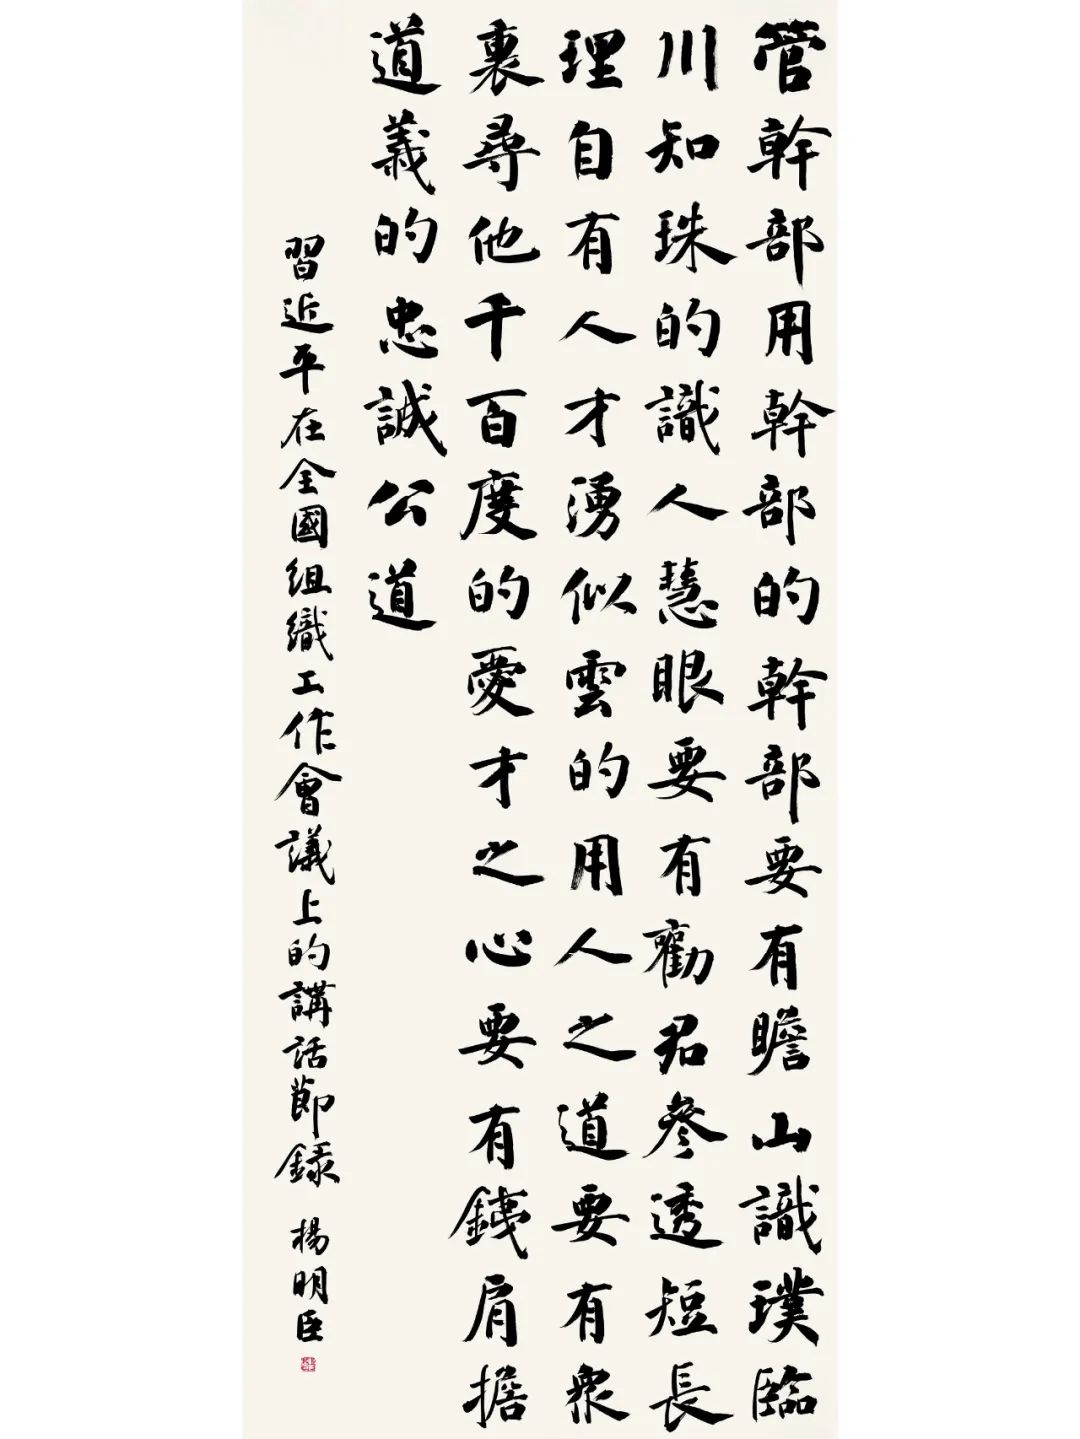 管幹部用幹部的幹部要有瞻山識璞臨
川知珠的識人慧眼要有勸君參透短長
理自有人才湧似雲的用人之道要有衆
裏尋他千百度的愛才之心要有鐵肩擔
道義的忠誠公道
習近平在全國組織工作會議上的講話節録 楊明臣